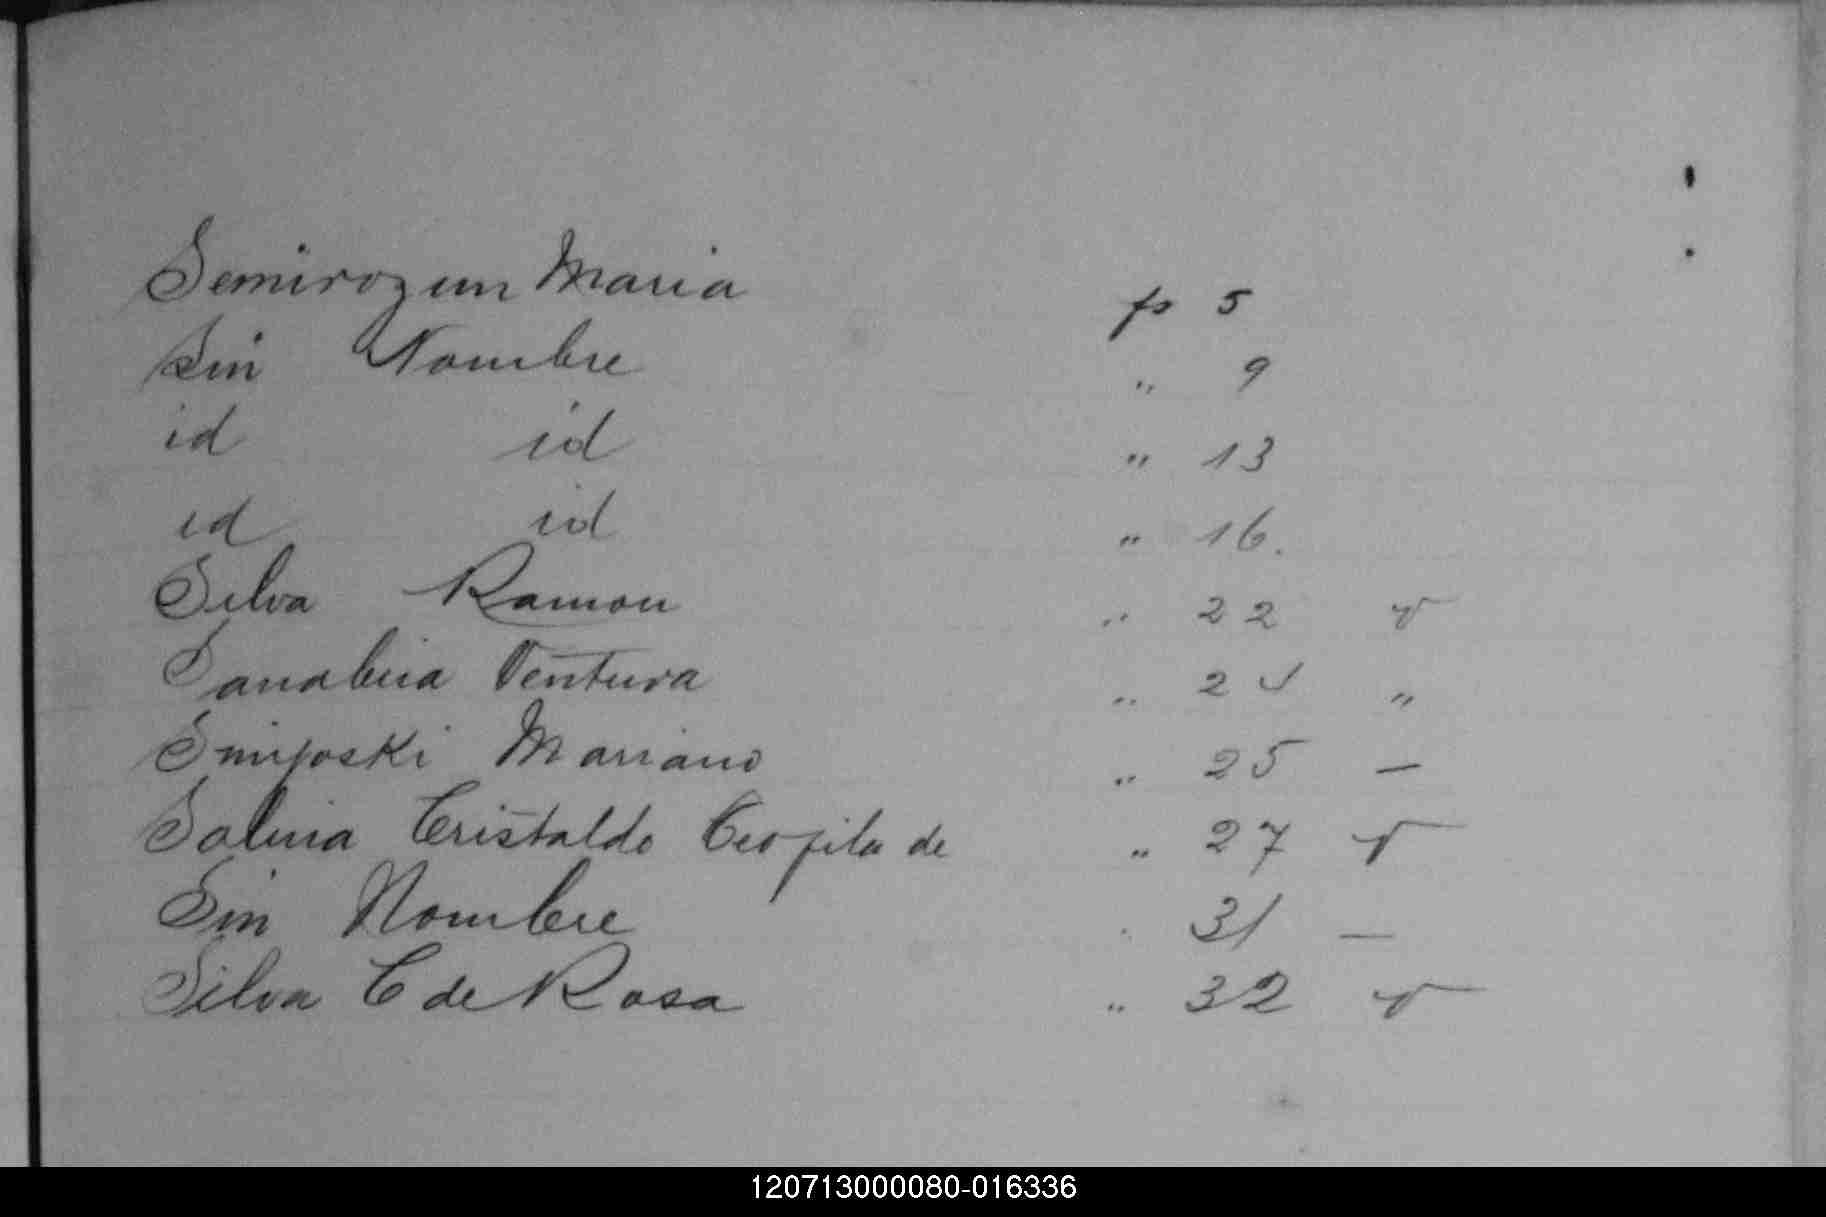 Semirozum Maria fs 5
Sin Nombre " 9
id id " 13
id id " 16.
Silva Ramon " 22 v
Sanabria Ventura " 24 "
Smijoski Mariano " 25 —
Salina Cristaldo Teofila de " 27 v
Sin Nombre " 31 —
Silva C de Rosa " 32 v
120713000080-016336